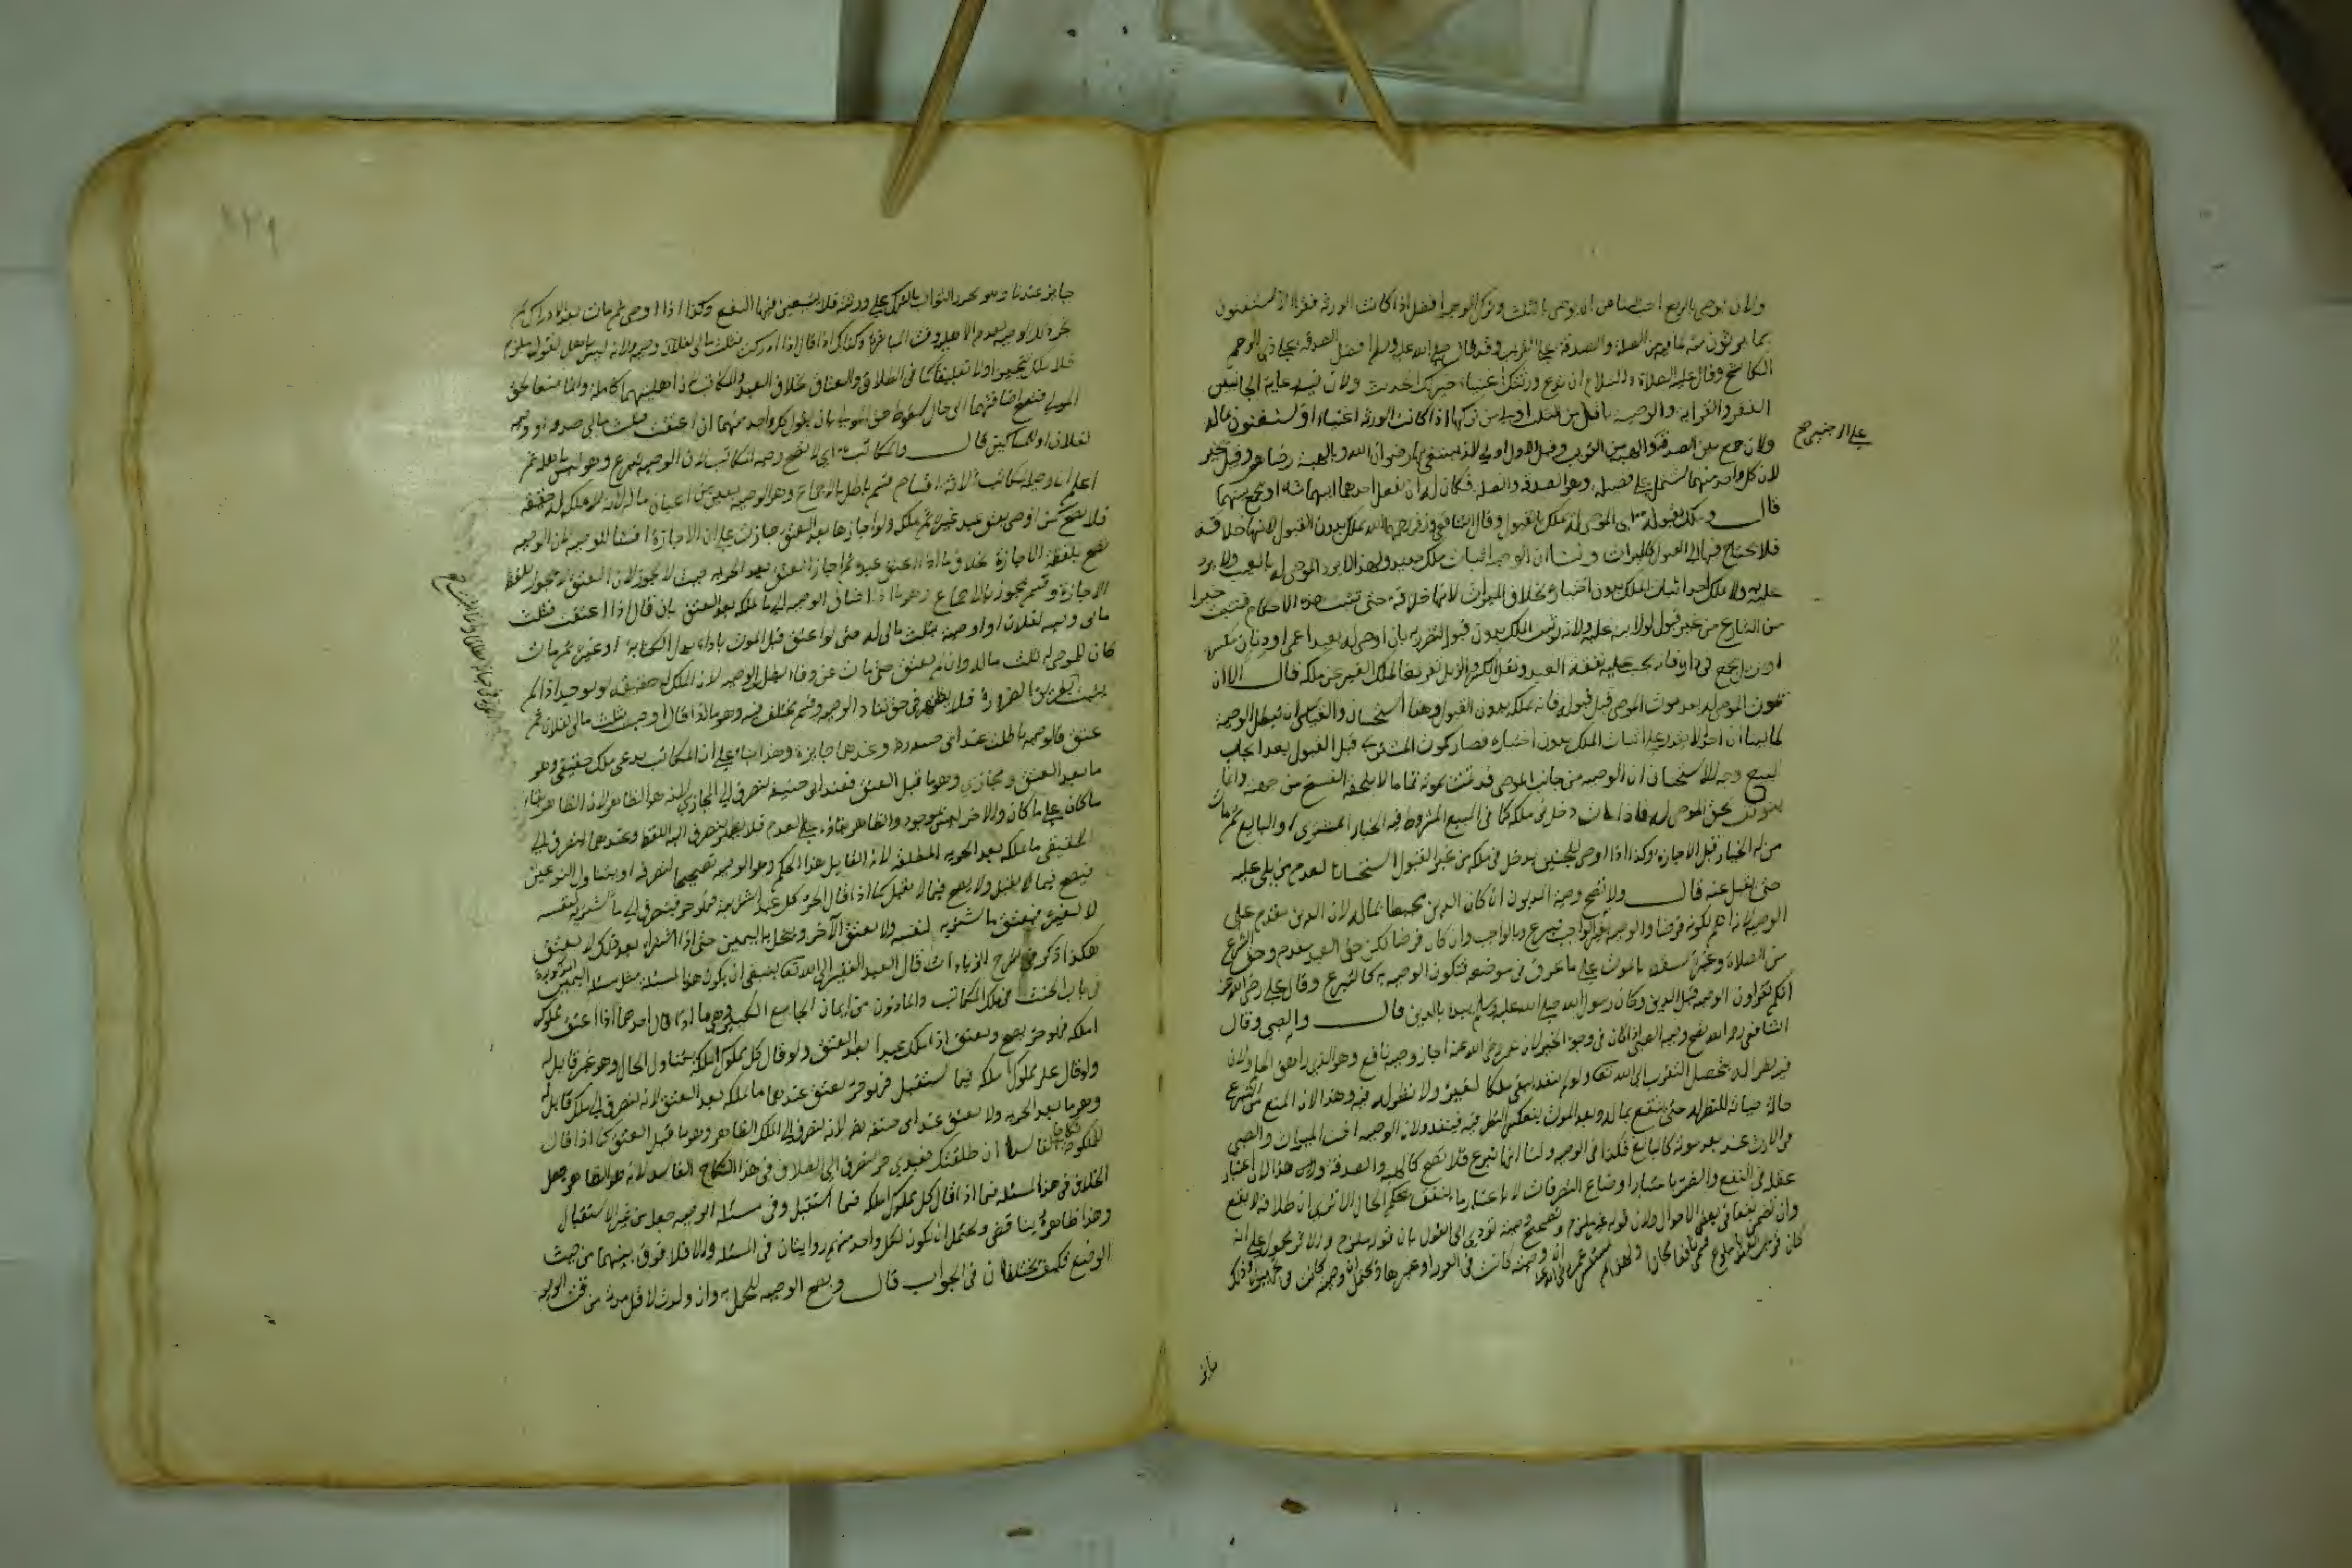 ولان يوصي بالربع احب الينا من ان يوصي بالثلث وترك الوصية افضل اذا كانت الورثة فقراء لا يستغنون
بما يرثون منه لما فيه من الصلة والصدقة على القريب وقد قال صلى الله عليه وسلم افضل الصدقة على ذي الرحم
الكاشح وقال عليه الصلاة والسلام ان تدع ورثتك اغنياء خير لك الحديث ولان فيه رعاية الجانبين
الفقر والقرابة والوصية باقل من الثلث اولى من تركها اذا كانت الورثة اغنياء او يستغنون بماله
على الاجنبي صح
ولان جمع بين الصدقة والهبة من القريب وقيل الاول اولى لانه يبتغى بها رضوان الله وبالهبة رضاهم وقيل يخير
لان كل واحد منهما يشتمل على فضيلة وهو الصدقة والصلة فكان له ان يفعل احدهما ايهما شاء او يجمع بينهما
قال وتملك بقبوله اي الموصى له يملك بالقبول وقال الشافعي وزفر رحمهما الله يملك بدون القبول لانها خلافة
فلا يحتاج فيها الى القبول كالميراث ولنا ان الوصية اثبات ملك جديد ولهذا لا يرد الموصى له بالعيب ولا يرد
عليه ولا يملك احد اثبات الملك بدون اختياره بخلاف الميراث لانها خلافة حتى تثبت هذه الاحكام فتثبت جبرا
من الشارع من غير قبول لولاية عليه ولانه لو ثبت الملك بدون قبول لتضرر به بان اوصى له بعبد اعمى او دنان مكسرة
او زبل يجمع في داره فانه يجب عليه نفقة العبد ونقل الكسر والزبل تفريغا لملك الغير عن ملكه قال الا ان
يموت الموصى له بعد موت الموصي قبل قبوله فانه يملكه بدون القبول وهذا استحسان والقياس ان تبطل الوصية
لما بينا ان احدا لا يقدر على اثبات الملك بدون اختياره فصار كموت المشتري قبل القبول بعد ايجاب
البيع وجه الاستحسان ان الوصية من جانب الموصي قد تمت بموته تماما لا يلحقه الفسخ من جهته وانما
توقفت بحق الموصى له فاذا مات دخل في ملكه كما في البيع المشروط فيه الخيار للمشتري او البايع ثم مات
من له الخيار قبل الاجازة وكذا اذا اوصى للجنين يدخل في ملكه من غير القبول استحسانا لعدم من يلي عليه
حتى يقبل عنه قال ولا تصح وصية المديون ان كان الدين محيطا بماله لان الدين مقدم على
الوصية لانه اهم لكونه فرضا والوصية بغير الواجب تبرع وبالواجب وان كان فرضا لكن حق العبد مقدم وحق الشرع
من الصلاة وغيرها يسقط بالموت على ما عرف في موضعه فتكون الوصية به كالتبرع وقال علي رضي الله عنه
انكم تقرؤن الوصية قبل الدين وكان رسول الله صلى الله عليه وسلم يبدا بالدين قال والصبي وقال
الشافعي رحمه الله تصح وصية الصبي اذا كان في وجوه الخير لان عمر رضي الله عنه اجاز وصية يافع وهو الذي راهق الحلم ولان
فيه نظرا له بتحصل التقرب الى الله تعالى ولو لم تنفذ يبقى ملكا لغيره ولا نظر له فيه وهذا لان المنع من التبرع
حالة حياته للنظر له حتى ينتفع بماله وبعد الموت ينعكس النظر فيه فينفذ ولان الوصية اخت الميراث والصبي
في الارث عنه بعد موته كالبالغ فكذا في الوصية ولنا انها تبرع فلا تصح كالهبة والصدقة وهذا لان اعتبار
عقله في النفع والضر باعتبار اوضاع التصرفات لا باعتبار ما يتفق بحكم الحال الا ترى ان طلاقه لا يقع
وان تضمن نفعا في بعض الاحوال ولان قوله غير ملزم وفي تصحيح وصيته تؤدي الى القول بان قوله ملزم والاثر محمول على انه
كان قريب العهد بالبلوغ
جايز عندنا وهو يحرز الثواب بالترك على ورثته فلا يتعين فيها النفع وكذا اذا اوصى ثم مات بعد الادراك لم
يجز ذلك الوصية لعدم الاهلية وقت المباشرة وكذا لو قال اذا ادركت فثلث مالي لفلان وصية لانه ليس باهل لقول ملزم
فلا يملك تنجيزا ولا تعليقا كما في الطلاق والعتاق بخلاف العبد والمكاتب اذ اهليتهما كاملة والمانع حق
المولى فتصح اضافتهما الى حال سقوط حق المولى بان يقول كل واحد منهما ان اعتقت فثلث مالي صدقة او وصية
لفلان او للمساكين قال والمكاتب اي لا تصح وصية المكاتب لان الوصية تبرع وهو ليس باهل له ثم
اعلم ان وصية المكاتب ثلاثة اقسام قسم باطل بالاجماع وهو الوصية بعين من اعيان ماله لانه لا ملك له حقيقة
فلا تصح كمن اوصى بعبد غيره ثم ملكه ولو اجازها بعد العتق جازت على ان الاجازة انشاء للوصية لان الوصية
تصح بلفظ الاجازة بخلاف ما اذا اعتق عبده ثم اجاز العتق بعد الحرية حيث لا يجوز لان العتق لا يجوز بلفظ
الاجازة وقسم يجوز بالاجماع وهو ما اذا اضاف الوصية الى ما يملكه بعد العتق بان قال اذا اعتقت فثلث
مالي وصية لفلان او اوصيت بثلث مالي له حتى لو اعتق قبل الموت باداء بدل الكتابة او غيره ثم مات
كان للموصى له ثلث ماله وان لم يعتق حتى مات عن وفاء بطل الوصية لان الملك له حقيقة لم يوجد اذا لم
يثبت بطريق الضرورة فلا يظهر في حق نفاذ الوصية وقسم مختلف فيه وهو ما اذا قال اوصيت بثلث مالي لفلان ثم
عتق فالوصية باطلة عند ابي حنيفة وعندهما جايزة وهذا بناء على ان المكاتب يدعى ملك حقيقي وهو
ما بعد العتق ومجازي وهو ما قبل العتق فعند ابي حنيفة ينصرف الى المجازي لانه هو الظاهر لان الظاهر بقاء
ما كان على ما كان والاخر ليس بموجود والظاهر بقاؤه على العدم فلا ينصرف اليه اللفظ وعندهما ينصرف الى
الحقيقي ما ملكه بعد الحرية المطلقة لانه القابل لهذا الحكم وهو الوصية تصحيحا لتصرفه او يتناول النوعين
فيصح فيما لا يقبل ولا يصح فيما لا يقبل كما اذا قال الحر كل عبد اشتريته فهو حر فينصرف الى ما يشتريه لنفسه
لا لغيره فيعتق ما يشتريه لنفسه ولا يعتق الآخر وتنحل به اليمين حتى اذا اشتراه بعد ذلك له لا يعتق
هكذا ذكر في شرح الزيادات قال العبد الفقير الى الله تعالى ينبغي ان يكون هذه المسئلة مثل مسئلة اليمين المذكورة
في باب الحنث في ملك المكاتب والماذون من ايمان الجامع الكبير وهي ما اذا قال احدهما اذا اعتق كل مملوك
املكه فهو حر يصح ويعتق اذا ملك عبدا بعد العتق ولو قال كل مملوك املكه يتناول الحال وهو غير قابل له
ولو قال كل مملوك املكه فيما يستقبل فهو حر يعتق عندهما ما ملكه بعد العتق لانه ينصرف الى ملك قابل له
وهو ما بعد الحرية ولا يعتق عند ابي حنيفة لانه ينصرف الى الملك الظاهر وهو ما قبل العتق كما اذا قال
للمنكوحة نكاحا فاسدا ان طلقتك فعبدي حر ينصرف الى الطلاق في هذا النكاح الفاسد لانه هو الظاهر جعل
الخلاف في هذه المسئلة فيما اذا قال كل مملوك املكه فيما استقبل وفي مسئلة الوصية جعله من غير الاستقبال
وهذا ظاهره يناقض ويحتمل ان يكون لكل واحد منهم روايتان في المسئلة والا فلا فرق بينهما من حيث
الوضع فكيف يختلفان في الجواب قال وتصح الوصية للحمل وبه وان ولدت لاقل مدته من وقت الوصية